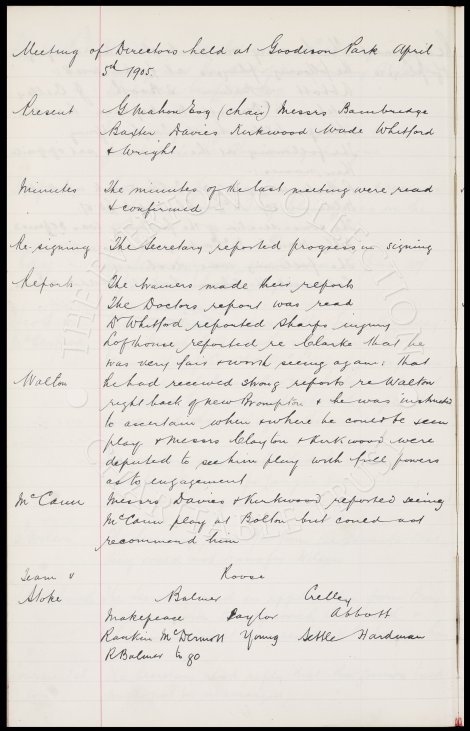 Meeting of Directors held at Goodison Park April
5th 1905.
Present G Mahon Esq (chair) Messrs Bainbridge
Baxter Davies Kirkwood Wade Whitford
& Wright
Minutes The minutes of the last meeting were read
& confirmed
Re-signing The Secretary reported progress in signing
Reports The trainers made their reports
The Doctors report was read
Dr Whitford reported Sharps injury
Lofthouse reported re Clarke that he
was very fair & worth seeing again: that
Walton he had received strong reports re Walton
right back of New Brompton & he was instructed
to ascertain when & where he could be seen
play & Messrs Clayton & Kirkwood were
deputed to see him play with full powers
as to engagement
McCann Messrs Davies & Kirkwood reported seeing
McCann play at Bolton but could not
recommend him
Team v Roose
Stoke Balmer Crelley
Makepeace Taylor Abbott
Rankin McDermott Young Settle Hardman
R Balmer to go